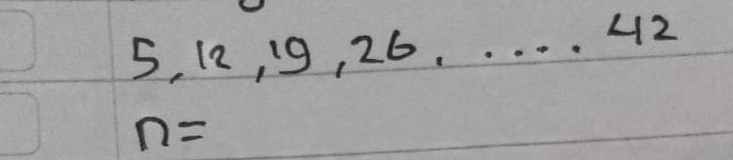 5, 12, 19, 26, ..... 42
n=